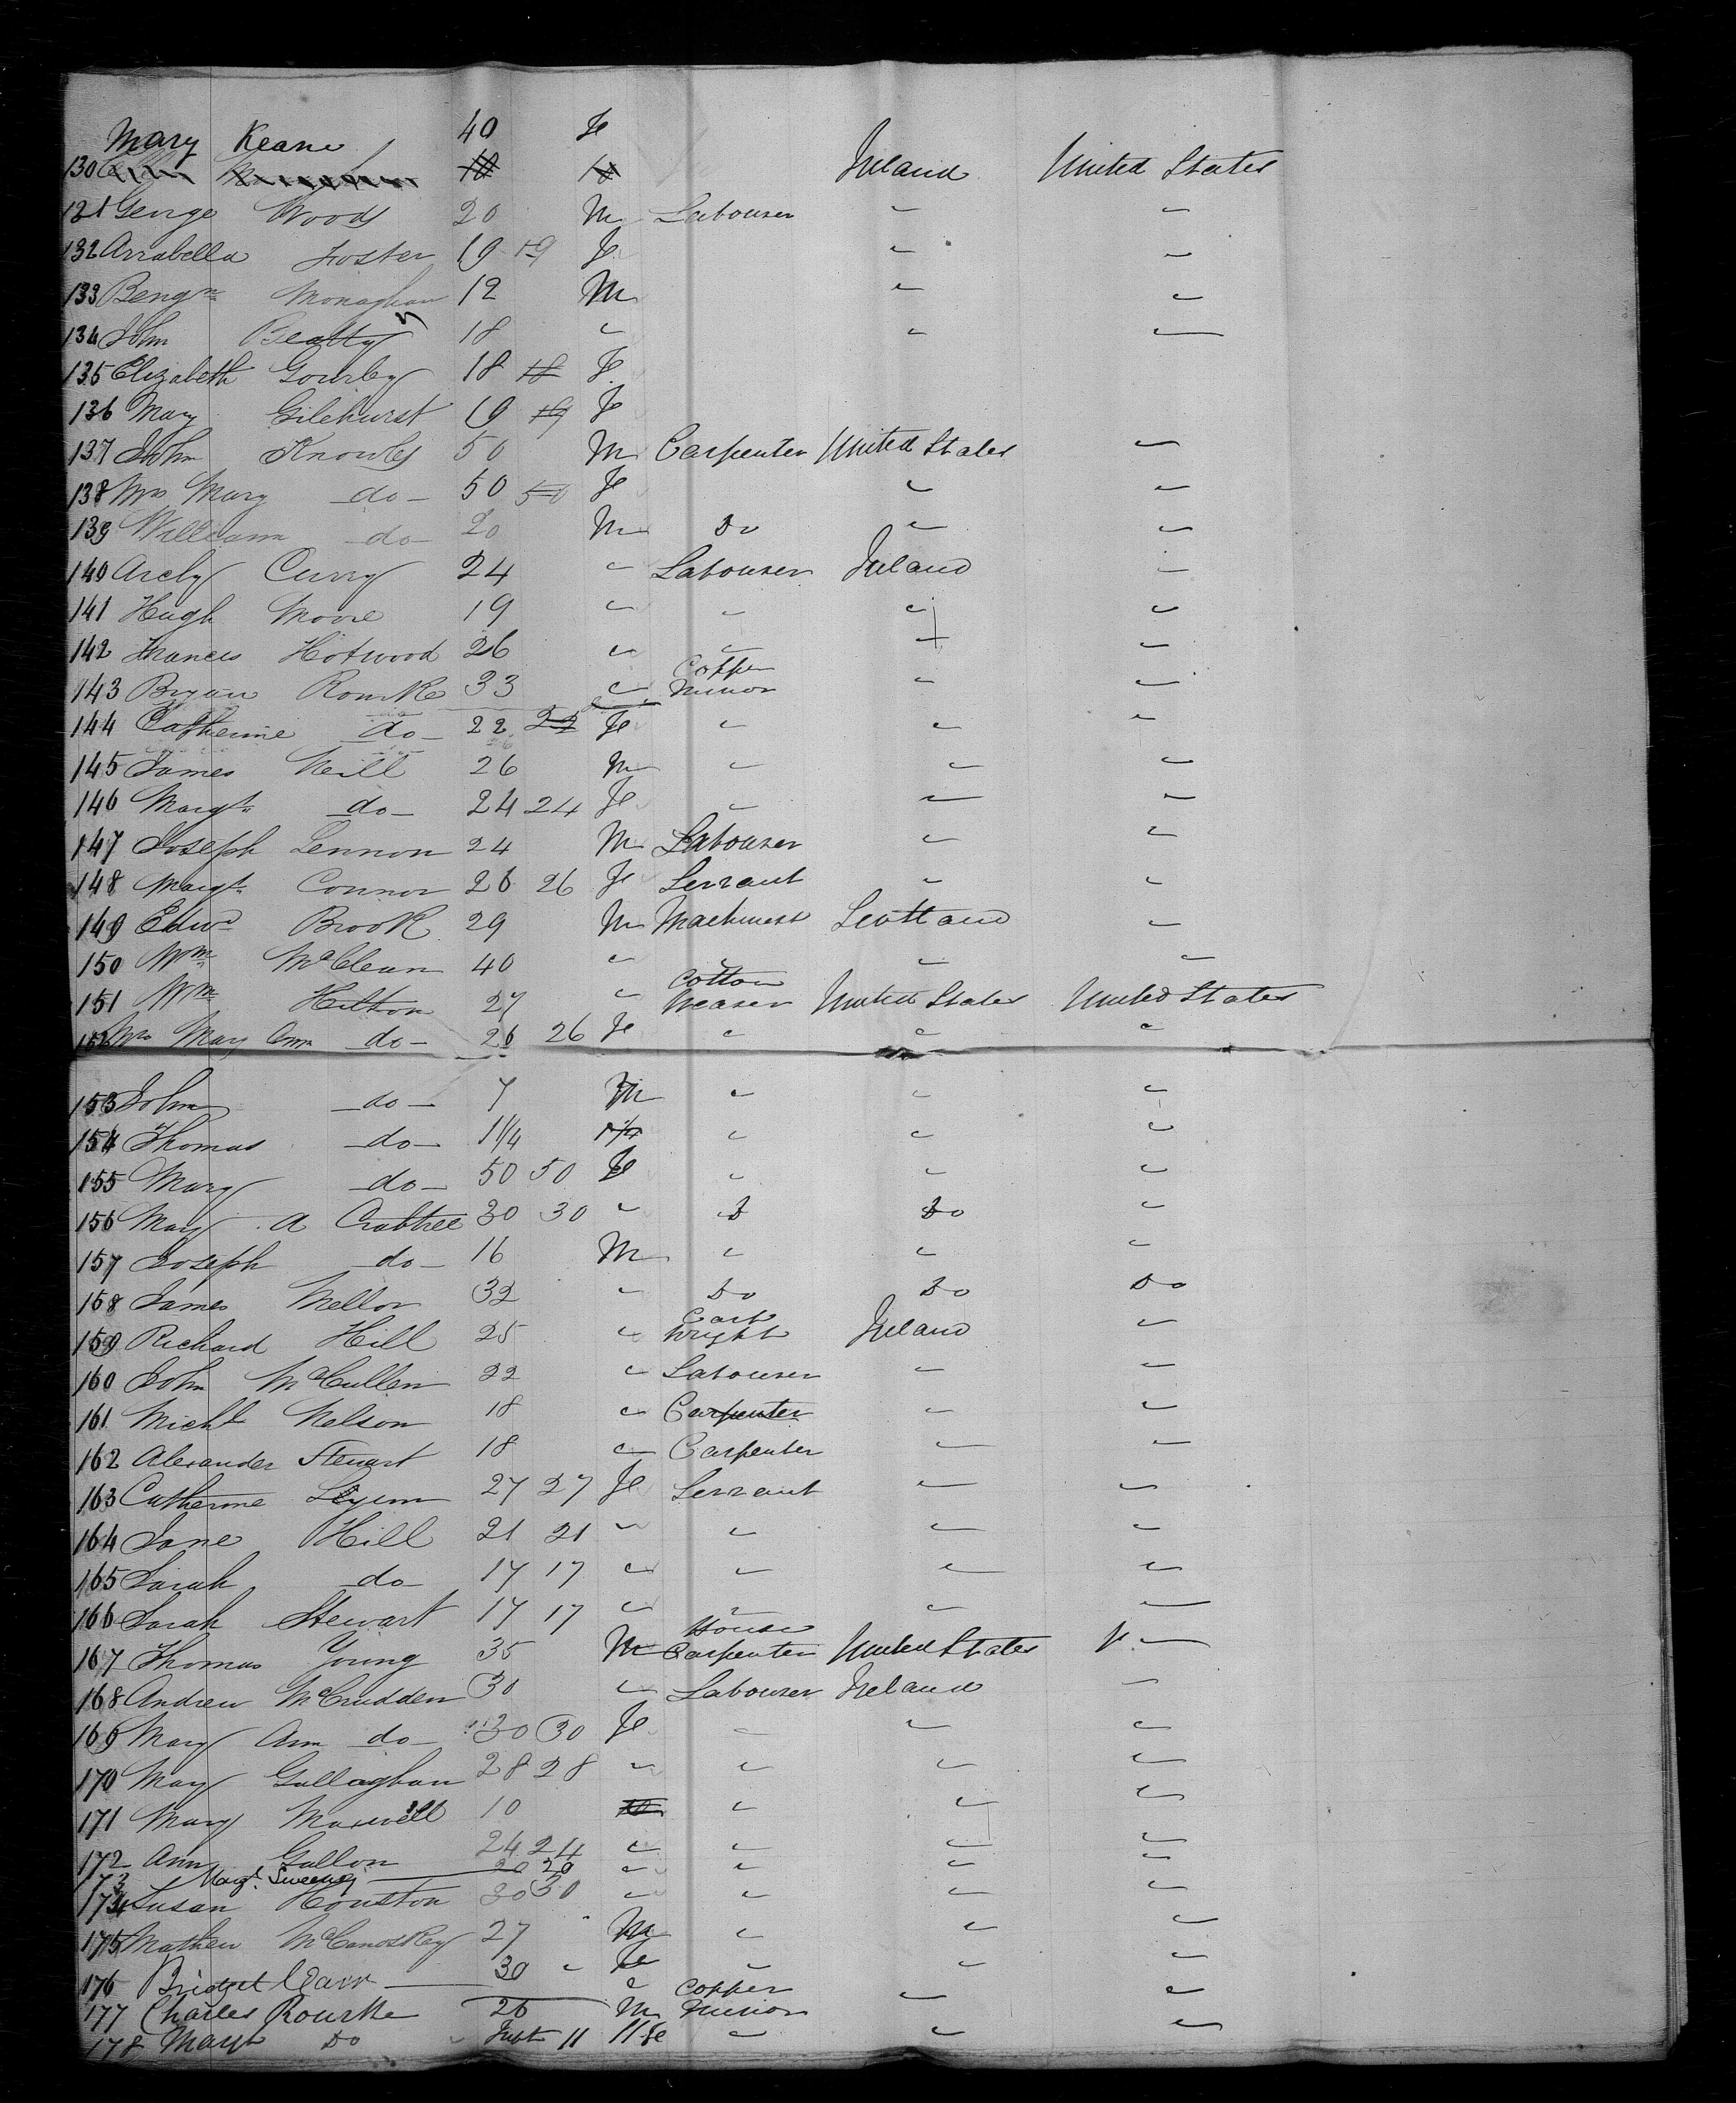 Mary Keane 40 Fe
130 Ireland United States
131 George Woods 20 M Labourer " "
132 Arrabella Foster 19 19 Fe " "
133 Bengn Monaghan 12 M " "
134 John Beatty 18 " " "
135 Elizabeth Gourley 18 18 Fe
136 Mary Gilchurst 19 19 Fe
137 John Knowles 50 M Carpenter United States "
138 Mrs Mary do 50 50 Fe " "
139 William do 20 M Do " "
140 Archy Curry 24 " Labourer Ireland "
141 Hugh Moore 19 " " " "
142 Frances Hotwood 26 " " " "
143 Bryan Rourke 33 " Copper Minor " "
144 Catherine do 22 22 Fe " " "
145 James Neill 26 M " " "
146 Margt do 24 24 Fe " " "
147 Joseph Lennon 24 M Labourer " "
148 Margt Connor 26 26 Fe Servant " "
149 Edwd Brook 29 M Machinest Scottland "
150 Wm McClean 40 " " " "
151 Wm Hilton 27 " Cotton Weaver United States United States
152 Mrs Mary Ann do 26 26 Fe " " "
153 John do 7 M " " "
154 Thomas do 1 1/4 1 1/4 " " "
155 Mary do 50 50 Fe " " "
156 Mary A Crabtree 30 30 " " Do "
157 Joseph do 16 M " " "
158 James Mellor 32 " Do Do Do
159 Richard Hill 25 " Cart Wright Ireland "
160 John McCullen 22 " Labourer " "
161 Michl Nelson 18 " Carpenter " "
162 Alexander Stewart 18 " Carpenter " "
163 Catherine 27 27 Fe Servant " "
164 Jane Hill 21 21 " " " "
165 Sarah do 17 17 " " " "
166 Sarah Stewart 17 17 " " " "
167 Thomas Young 35 M House Carpenter United States "
168 Andrew McCrudden 30 " Labourer Ireland "
169 Mary Ann do 30 30 Fe " " "
170 Mary Gallaghan 28 28 " " " "
171 Mary Maxwell 10 10 " " "
172 Ann Gallon 24 24 " " " "
173 Margt Sweeney 20 20 " " " "
174 Susan Houston 30 30 " " " "
175 Mathew McCanoskey 27 M " " "
176 Bridget Carr 30 " Fe " " "
177 Charles Rourke 26 M Copper Minor " "
178 Margt Do Inft 11 11 Fe " " "